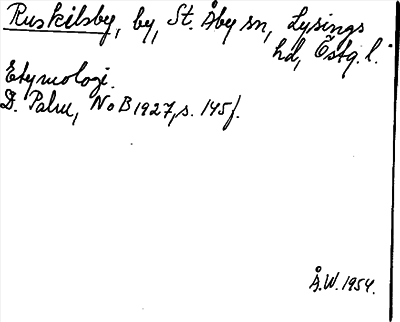 Ruskilsby, by, St. Åby sn, Lysings
hd, Östg. l.
Etymologi.
D. Palm, NoB 1927, s. 145f.
Å.W. 1954.